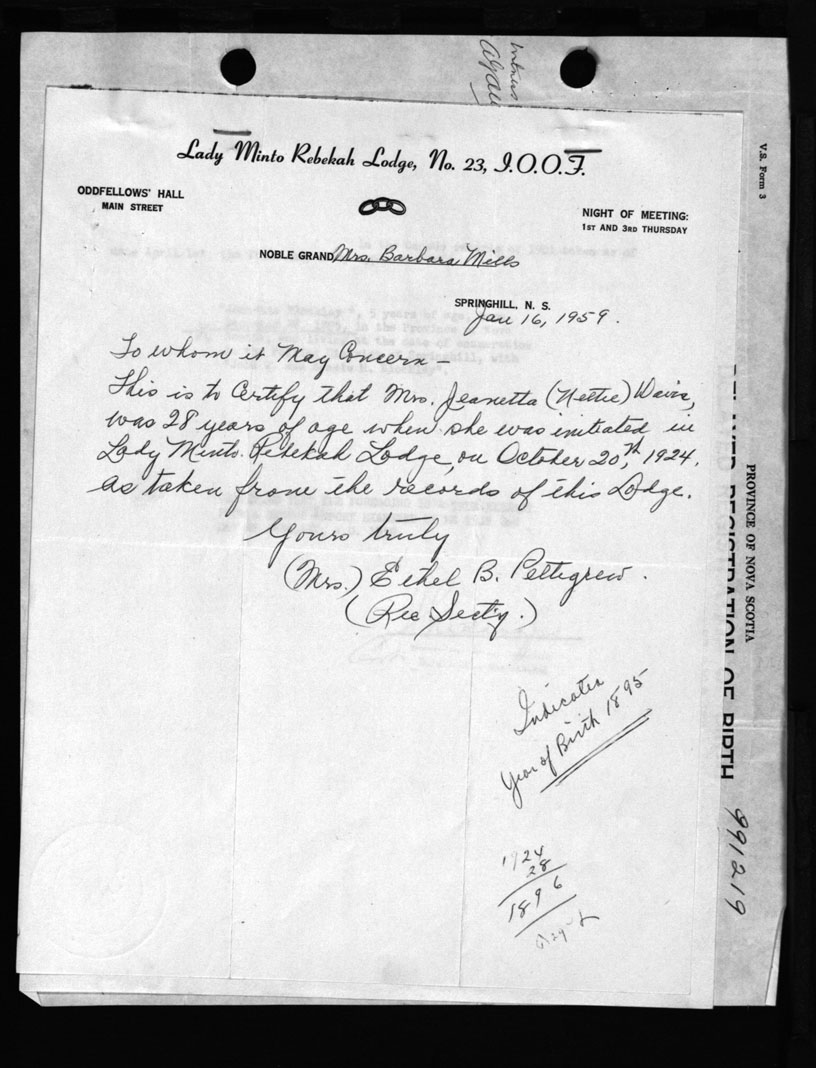 Witness
V.S. Form 3
Lady Minto Rebekah Lodge, No. 23, I.O.O.F.
ODDFELLOWS' HALL
MAIN STREET
NIGHT OF MEETING:
1ST AND 3RD THURSDAY
NOBLE GRAND Mrs. Barbara Mills
SPRINGHILL, N. S.
Jan 16, 1959.
To whom it May Concern –
This is to Certify that Mrs. Jeanetta (Nettie) Davis,
was 28 years of age when she was initiated in
Lady Minto Rebekah Lodge, on October 20,th 1924.
as taken from the records of this Lodge.
Yours truly
(Mrs.) Ethel B. Pettigrew.
(Rec. Sect'y.)
Indicates
Year of Birth 1895
1924
28
1896
PROVINCE OF NOVA SCOTIA
REGISTRATION OF BIRTH
991219